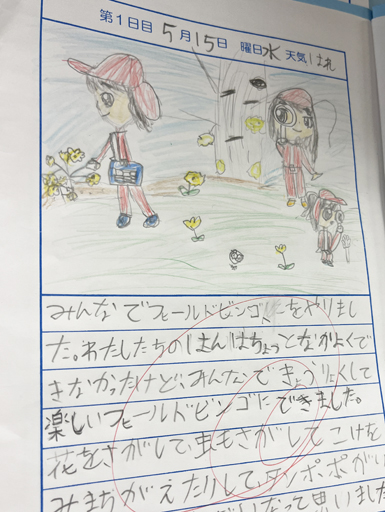 第1日目 5月15日 曜日水 天気はれ
みんなでフィールドビンゴをやりまし
た。わたしたちのはんはちょっとなかよくで
きなかったけど、みんなできょうりょくして
楽しいフィールドビンゴにできました。
花をさがして、虫もさがしてこけを
みまちがえたりして、タンポポがい